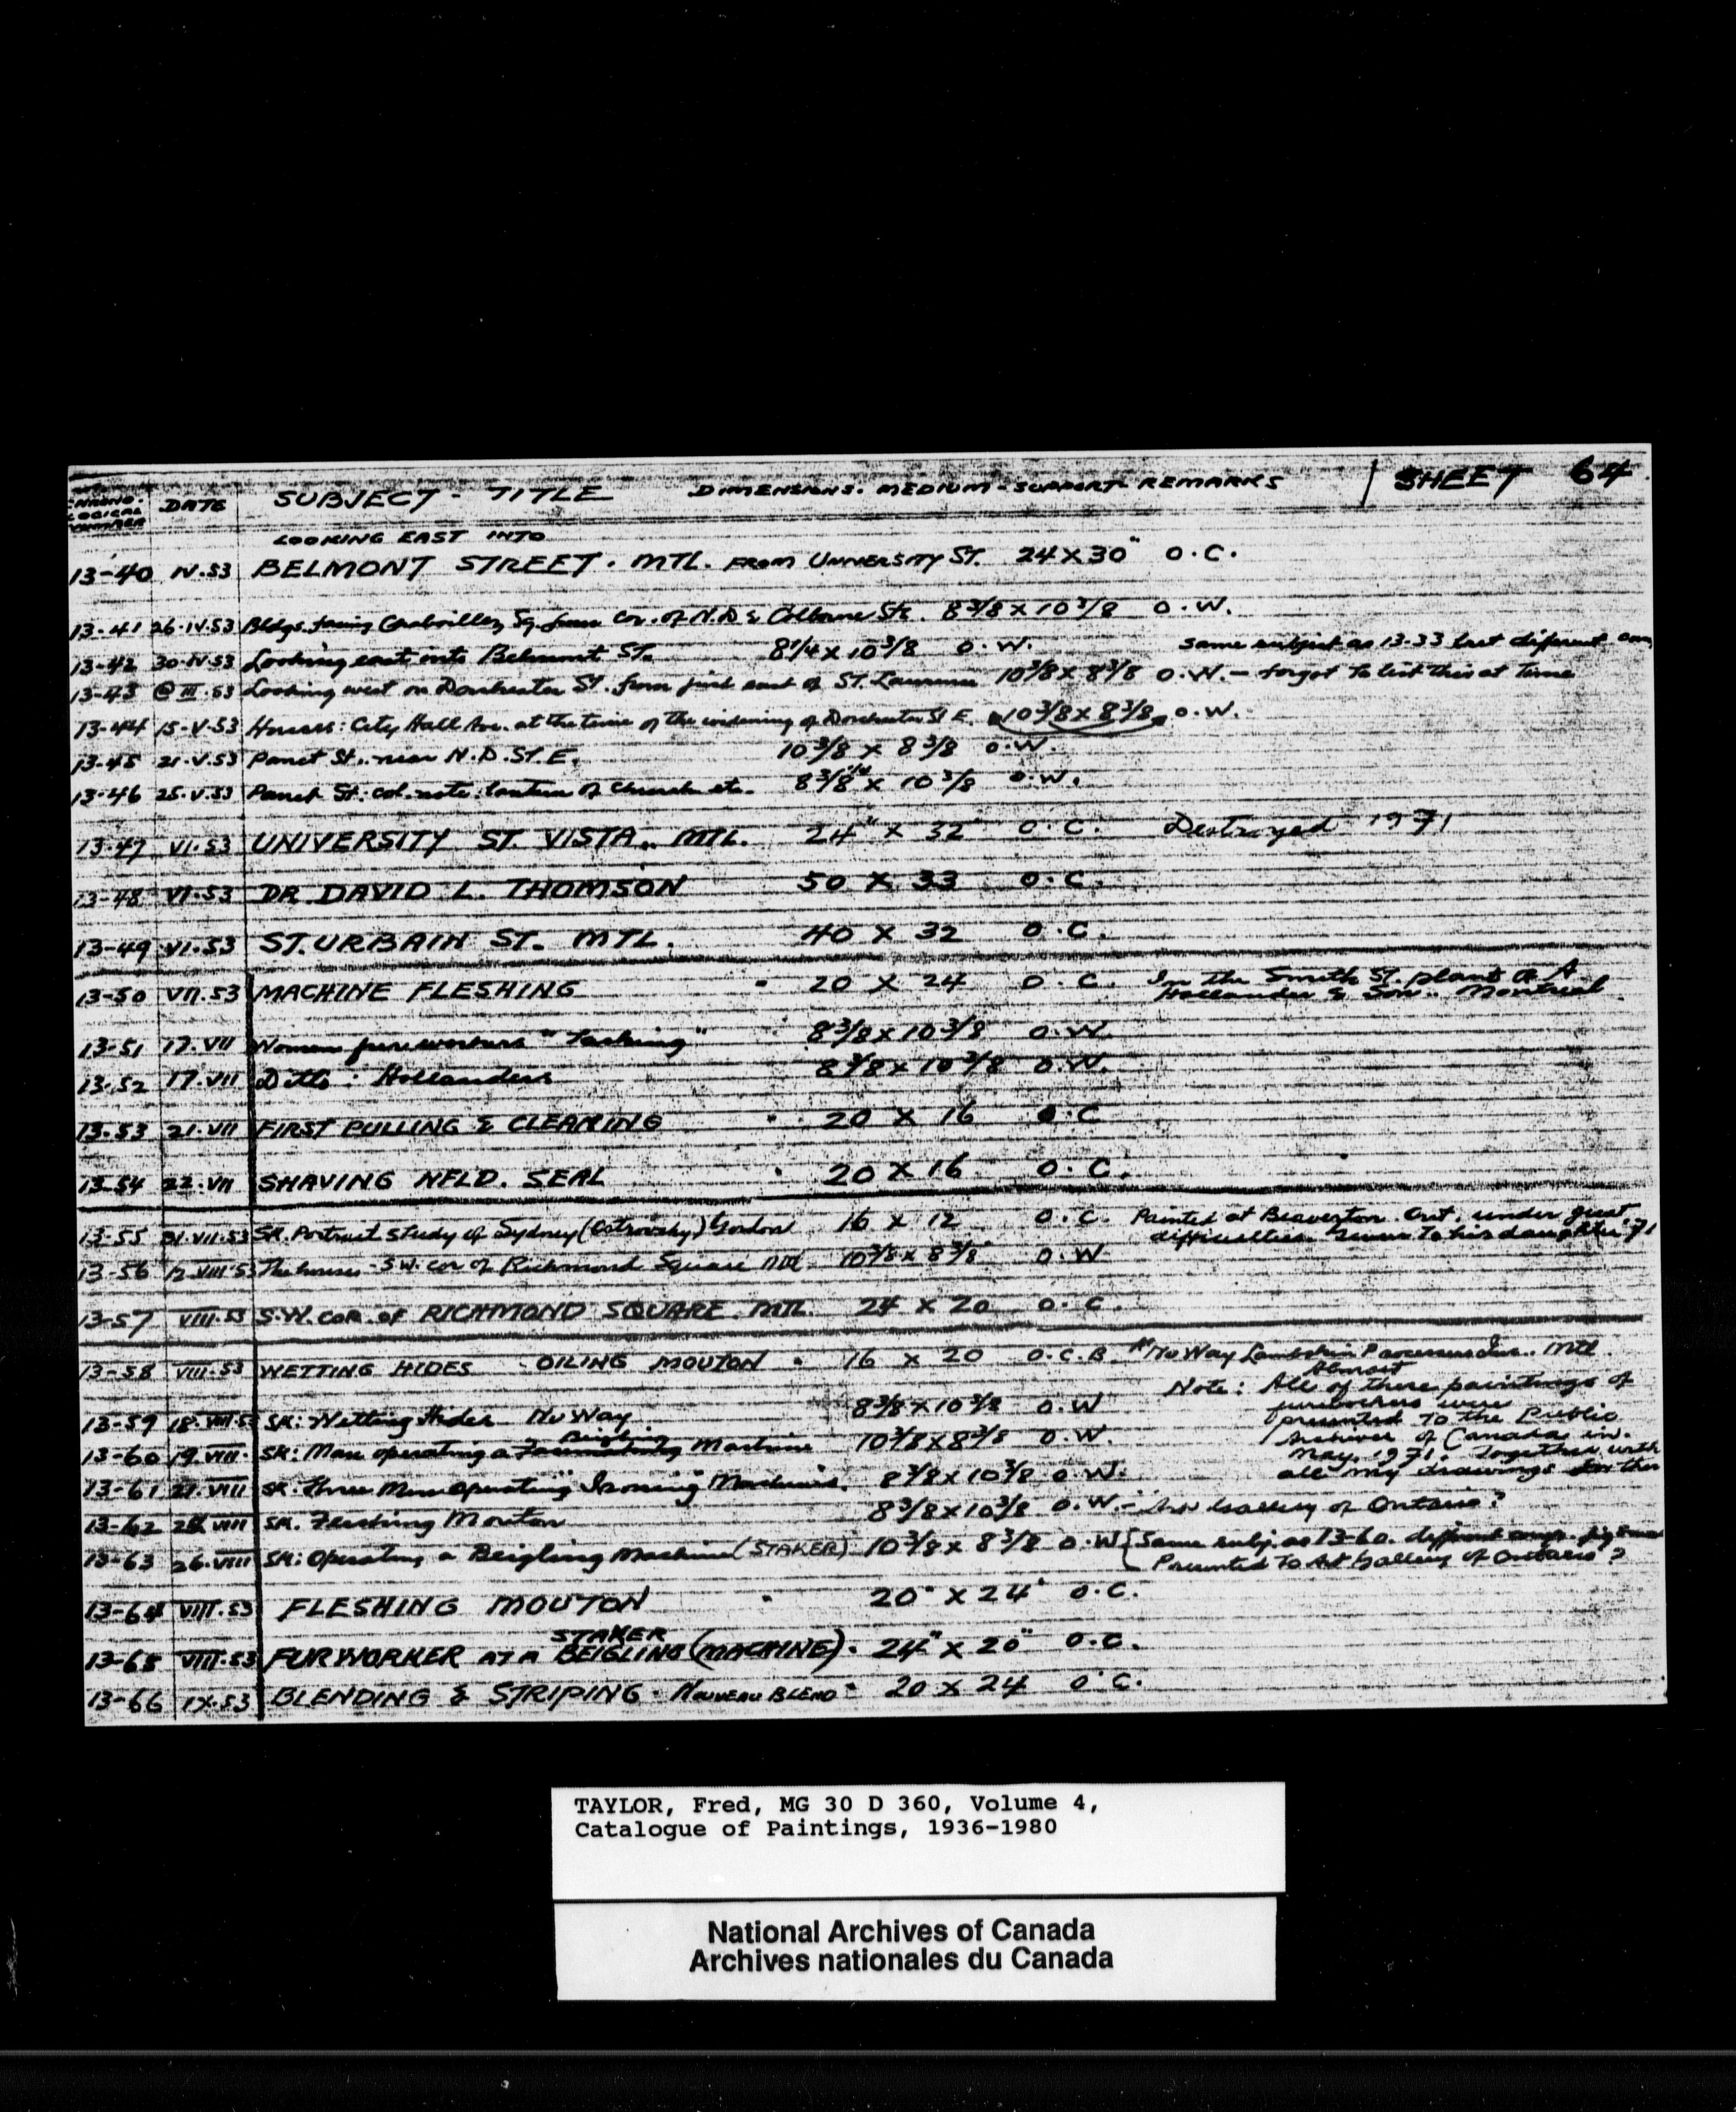 CHRONO-LOGICAL NUMBER DATE SUBJECT - TITLE DIMENSIONS. MEDIUM - SUPPORT - REMARKS SHEET 64
LOOKING EAST INTO
13-40 IV.53 BELMONT STREET. MTL. FROM UNIVERSITY ST. 24 X 30" O.C.
13-41 26.IV.53 Bldgs. facing Chaboillez Sq. from cor. of N.D & Colborne Sts. 8 3/8 x 10 3/8 O.W.
13-42 30.IV.53 Looking east into Belmont St. 8 1/4 x 10 3/8 O.W. Same subject as 13-33 but different
13-43 @ III.53 Looking west on Dorchester St. from just east of St. Laurence 10 3/8 x 8 3/8 O.W. - forgot to list this at time
13-44 15-V-53 Houses: City Hall Ave. at the time of the widening of Dorchester St E. 10 3/8 x 8 3/8 O.W.
13-45 21.V.53 Panet St. near N.D. ST. E. 10 3/8 x 8 3/8 O.W.
13-46 25.V.53 Panet St: col. note: lantern of Church etc. 8 3/8 x 10 3/8 O.W.
13-47 VI.53 UNIVERSITY ST. VISTA. MTL. 24" X 32 O.C. Destroyed 1971
13-48 VI.53 DR DAVID L. THOMSON 50 X 33 O.C.
13-49 VI.53 ST. URBAIN ST. MTL. 40 X 32 O.C.
13-50 VII.53 MACHINE FLESHING " 20 X 24 O.C. In the Smith St. plant of A
Hollander & Son.. Montreal.
13-51 17.VII Women fur workers "Tacking" 8 3/8 x 10 3/8 O.W.
13-52 17.VII Ditto: Hollanders 8 3/8 x 10 3/8 O.W.
13-53 21.VII FIRST PULLING & CLEANING " 20 X 16 O.C
13-54 22.VII SHAVING NFLD. SEAL " 20 X 16 O.C.
13-55 31.VII.53 SK. Portrait study of Sydney (Ostrovsky) Gordon 16 x 12 O.C. Painted at Beaverton. Ont. under great
difficulties. Given to his daughter '71
13-56 12.VIII.53 The houses - S.W. cor of Richmond Square Mtl. 10 3/8 x 8 3/8 O.W
13-57 VIII.53 S.W. COR. OF RICHMOND SQUARE. MTL. 24 X 20 O.C.
13-58 VIII.53 WETTING HIDES - OILING MOUTON " 16 x 20 O.C.B Nu Way Lambskin Processors Inc. Mtl.
Almost
Note: All of these paintings of
13-59 18.VIII.53 SK: Wetting Hides Nu Way 8 3/8 x 10 3/8 O.W
furworkers were
presented to the Public
Beigling
13-60 19.VIII. SK: Man operating a Machine 10 3/8 x 8 3/8 O.W.
Archives of Canada in.
May, 1971. Together with
13-61 21.VIII SK: Three Men operating "Ironing" Machines. 8 3/8 x 10 3/8 O.W.
all my drawings for them
13-62 24 VIII SK. Fleshing Mouton 8 3/8 x 10 3/8 O.W. - Art Gallery of Ontario?
13-63 26.VIII SK: Operating a Beigling Machine (STAKER) 10 3/8 x 8 3/8 O.W. Same subj. as 13-60. different comp.
Presented to Art Gallery of Ontario?
13-64 VIII.53 FLESHING MOUTON " 20" x 24" O.C.
STAKER
13-65 VIII.53 FURWORKER AT A BEIGLING (MACHINE). 24" X 20" O.C.
13-66 IX.53 BLENDING & STRIPING - NOUVEAU BLEND " 20 x 24 O.C.
TAYLOR, Fred, MG 30 D 360, Volume 4,
Catalogue of Paintings, 1936-1980
National Archives of Canada
Archives nationales du Canada